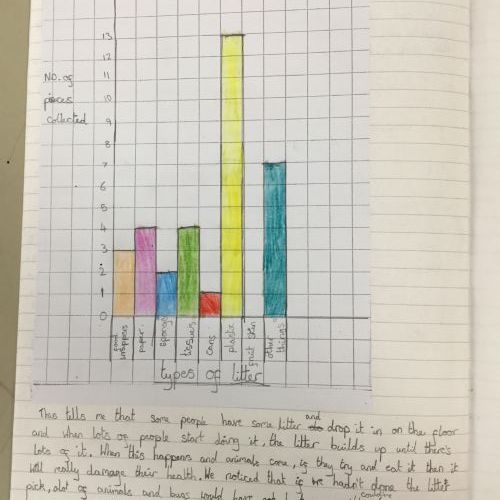 13
12
11
10
9
8
7
6
5
4
3
2
1
0
NO. of
pieces
collected
food wrappers
paper
sponge
tissues
cans
plastic
fruit skin
other things
types of litter
This tells me that some people have some litter and drop it in on the floor
and when lots of people start doing it. the litter builds up until there's
lots of it. When this happens and animals come, is they try and eat it then it
will really damage their health. We noticed that is we hadn't done the litter
pick, alot of animals and bugs would have